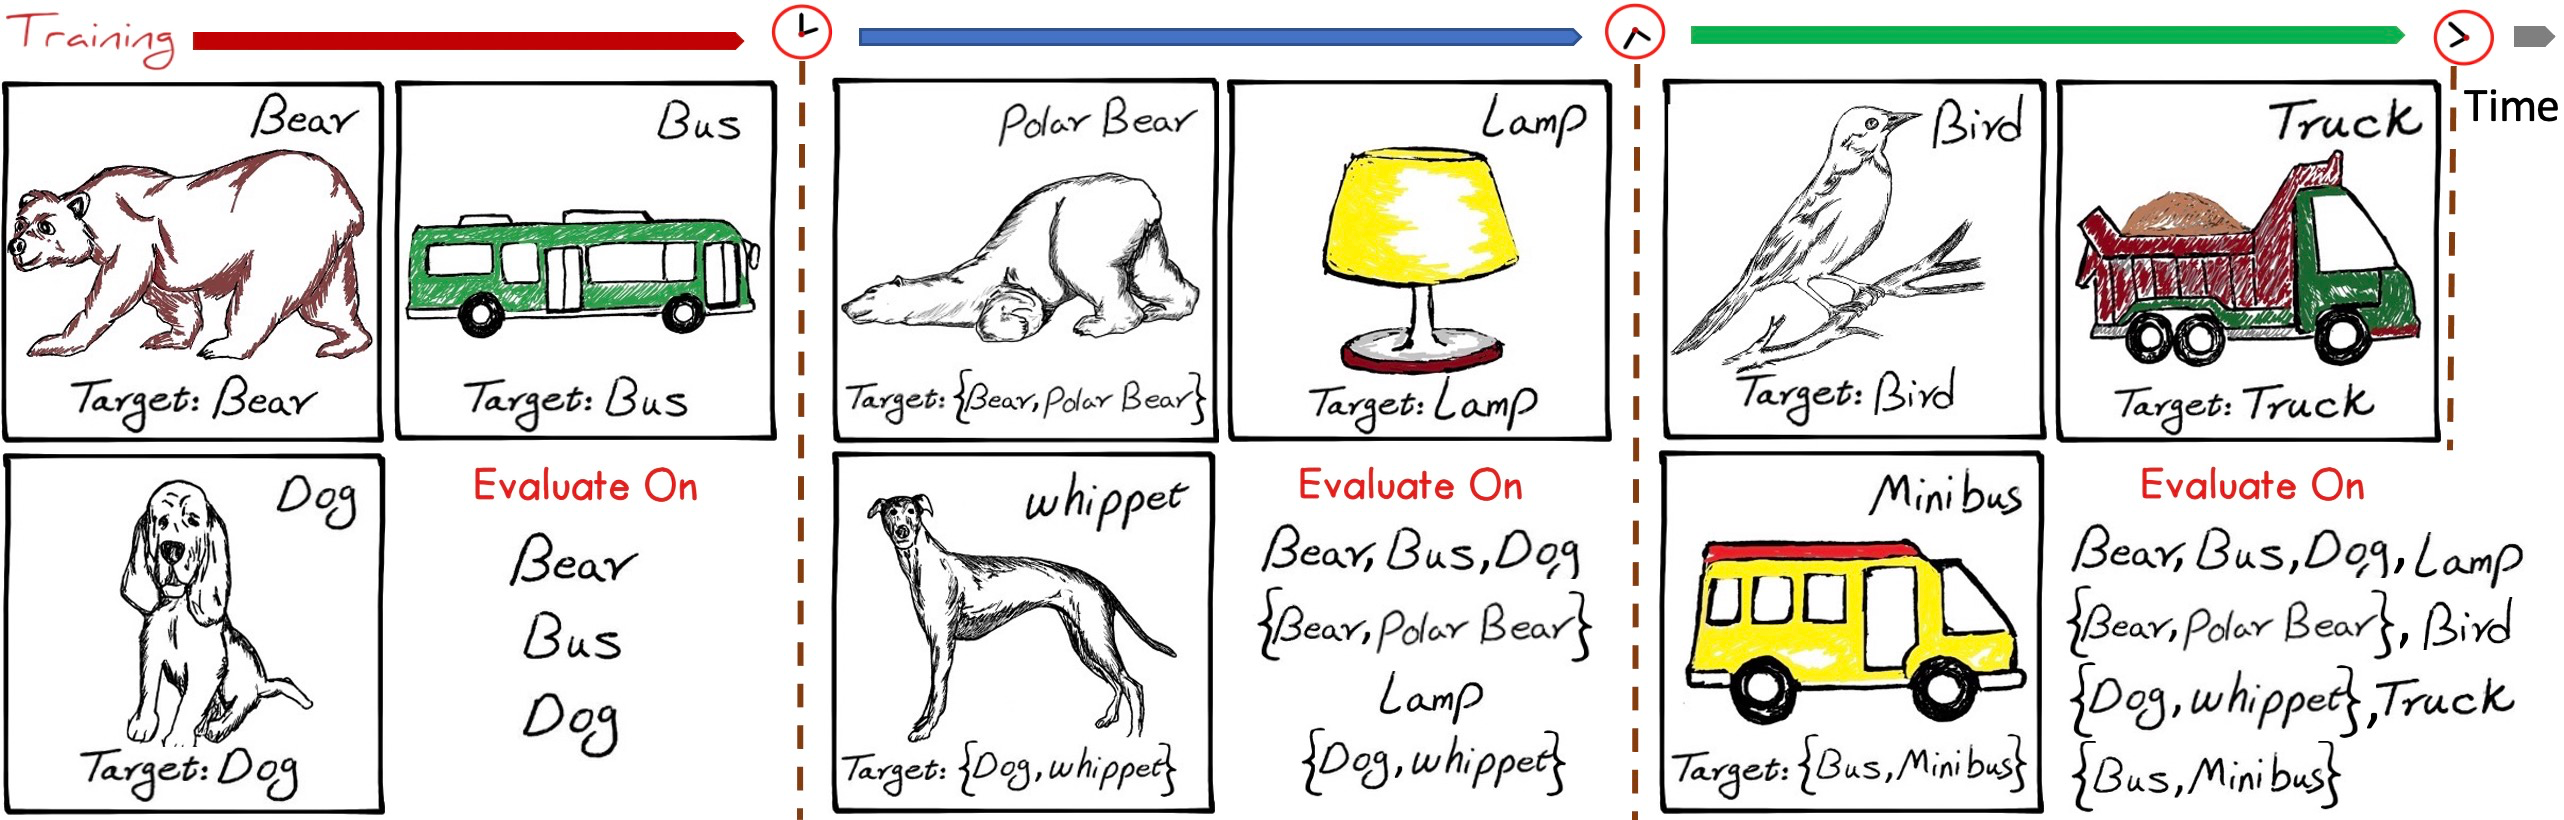 Training
Time
Bear
Target: Bear
Bus
Target: Bus
Dog
Target: Dog
Evaluate On
Bear
Bus
Dog
Polar Bear
Target: {Bear, Polar Bear}
Lamp
Target: Lamp
whippet
Target: {Dog, whippet}
Evaluate On
Bear, Bus, Dog
{Bear, Polar Bear}
Lamp
{Dog, whippet}
Bird
Target: Bird
Truck
Target: Truck
Minibus
Target: {Bus, Minibus}
Evaluate On
Bear, Bus, Dog, Lamp
{Bear, Polar Bear}, Bird
{Dog, whippet}, Truck
{Bus, Minibus}